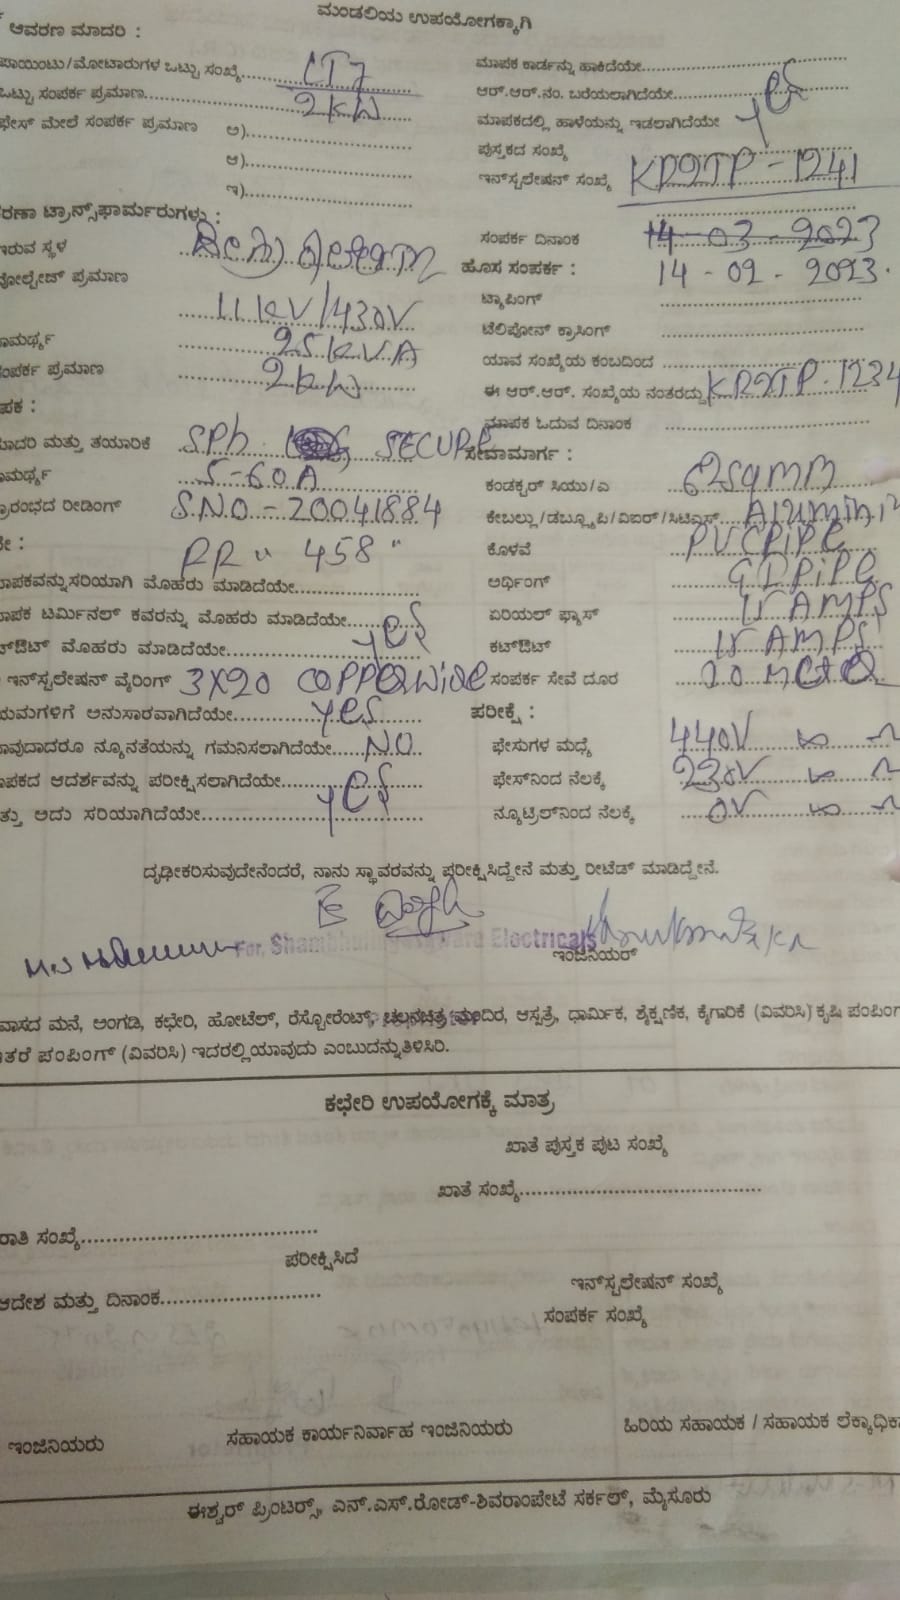 ಮಂಡಲಿಯ ಉಪಯೋಗಕ್ಕಾಗಿ
ಆವರಣ ಮಾದರಿ :
ಪಾಯಿಂಟು/ಮೋಟಾರುಗಳ ಒಟ್ಟು ಸಂಖ್ಯೆ.......... LT7
ಒಟ್ಟು ಸಂಪರ್ಕ ಪ್ರಮಾಣ.......... 2KW
ಫೇಸ್ ಮೇಲೆ ಸಂಪರ್ಕ ಪ್ರಮಾಣ ಅ)..........
ಆ)..........
ಇ)..........
ಮಾಪಕ ಕಾರ್ಡನ್ನು ಹಾಕಿದೆಯೇ..........
ಆರ್.ಆರ್.ನಂ. ಬರೆಯಲಾಗಿದೆಯೇ..........
ಮಾಪಕದಲ್ಲಿ ಹಾಳೆಯನ್ನು ಇಡಲಾಗಿದೆಯೇ yes
ಪುಸ್ತಕದ ಸಂಖ್ಯೆ
ಇನ್‌ಸ್ಟಲೇಷನ್ ಸಂಖ್ಯೆ 1241
ಟ್ರಾನ್ಸ್‌ಫಾರ್ಮರುಗಳು :
ಇರುವ ಸ್ಥಳ
ವೋಲ್ಟೇಜ್ ಪ್ರಮಾಣ
11KV/430V
ಸಾಮರ್ಥ್ಯ 25KVA
ಸಂಪರ್ಕ ಪ್ರಮಾಣ 2KW
ಸಂಪರ್ಕ ದಿನಾಂಕ 14-03-2023
ಹೊಸ ಸಂಪರ್ಕ : 14-02-2023.
ಟ್ಯಾಪಿಂಗ್
ಟೆಲಿಫೋನ್ ಕ್ರಾಸಿಂಗ್
ಯಾವ ಸಂಖ್ಯೆಯ ಕಂಬದಿಂದ
ಈ ಆರ್.ಆರ್. ಸಂಖ್ಯೆಯ ನಂತರದ್ದು 1234
ಮಾಪಕ ಓದುವ ದಿನಾಂಕ
ಮಾದರಿ ಮತ್ತು ತಯಾರಿಕೆ SPh SECURE
ಸಾಮರ್ಥ್ಯ 5-60A
ಪ್ರಾರಂಭದ ರೀಡಿಂಗ್ S.NO-20041884
RR " 458 "
ಮಾಪಕವನ್ನು ಸರಿಯಾಗಿ ಮೊಹರು ಮಾಡಿದೆಯೇ..........
ಮಾಪಕ ಟರ್ಮಿನಲ್ ಕವರನ್ನು ಮೊಹರು ಮಾಡಿದೆಯೇ..........
ಕಟ್‌ಔಟ್ ಮೊಹರು ಮಾಡಿದೆಯೇ.......... yes
ಇನ್‌ಸ್ಟಲೇಷನ್ ವೈರಿಂಗ್ 3X20 COPPER WIRE
ನಿಯಮಗಳಿಗೆ ಅನುಸಾರವಾಗಿದೆಯೇ.......... yes
ಯಾವುದಾದರೂ ನ್ಯೂನತೆಯನ್ನು ಗಮನಿಸಲಾಗಿದೆಯೇ...... NO
ಮಾಪಕದ ಆದರ್ಶವನ್ನು ಪರೀಕ್ಷಿಸಲಾಗಿದೆಯೇ..........
ಮತ್ತು ಅದು ಸರಿಯಾಗಿದೆಯೇ.......... yes
ಸೇವಾಮಾರ್ಗ :
ಕಂಡಕ್ಟರ್ ಸಿಯು/ಎ sqmm
ಕೇಬಲ್ಲು/ಡಬ್ಲ್ಯೂಪಿ/ವಿಐಆರ್/ಸಿಟಿಎಸ್
ಕೊಳವೆ PVC PIPE
ಅರ್ಥಿಂಗ್ GI PIPE
ಏರಿಯಲ್ ಫ್ಯೂಸ್ 15 AMPS
ಕಟ್‌ಔಟ್ 15 AMPS
ಸಂಪರ್ಕ ಸೇವೆ ದೂರ
ಪರೀಕ್ಷೆ :
ಫೇಸುಗಳ ಮಧ್ಯೆ 440V
ಫೇಸ್‌ನಿಂದ ನೆಲಕ್ಕೆ 230V
ನ್ಯೂಟ್ರಲ್‌ನಿಂದ ನೆಲಕ್ಕೆ 0V
ದೃಢೀಕರಿಸುವುದೇನೆಂದರೆ, ನಾನು ಸ್ಥಾವರವನ್ನು ಪರೀಕ್ಷಿಸಿದ್ದೇನೆ ಮತ್ತು ರೀಟೆಡ್ ಮಾಡಿದ್ದೇನೆ.
For, Electricals
ಇಂಜಿನಿಯರ್
ವಾಸದ ಮನೆ, ಅಂಗಡಿ, ಕಛೇರಿ, ಹೋಟೆಲ್, ರೆಸ್ಟೋರೆಂಟ್, ಚಲನಚಿತ್ರ ಮಂದಿರ, ಆಸ್ಪತ್ರೆ, ಧಾರ್ಮಿಕ, ಶೈಕ್ಷಣಿಕ, ಕೈಗಾರಿಕೆ (ವಿವರಿಸಿ) ಕೃಷಿ ಪಂಪಿಂಗ್
ಇತರೆ ಪಂಪಿಂಗ್ (ವಿವರಿಸಿ) ಇದರಲ್ಲಿ ಯಾವುದು ಎಂಬುದನ್ನು ತಿಳಿಸಿರಿ.
ಕಛೇರಿ ಉಪಯೋಗಕ್ಕೆ ಮಾತ್ರ
ಖಾತೆ ಪುಸ್ತಕ ಪುಟ ಸಂಖ್ಯೆ
ಖಾತೆ ಸಂಖ್ಯೆ..........
ರಾತಿ ಸಂಖ್ಯೆ..........
ಪರೀಕ್ಷಿಸಿದೆ
ಇನ್‌ಸ್ಟಲೇಷನ್ ಸಂಖ್ಯೆ
ಆದೇಶ ಮತ್ತು ದಿನಾಂಕ..........
ಸಂಪರ್ಕ ಸಂಖ್ಯೆ
ಇಂಜಿನಿಯರು ಸಹಾಯಕ ಕಾರ್ಯನಿರ್ವಾಹ ಇಂಜಿನಿಯರು ಹಿರಿಯ ಸಹಾಯಕ / ಸಹಾಯಕ ಲೆಕ್ಕಾಧಿಕಾ
ಈಶ್ವರ್ ಪ್ರಿಂಟರ್ಸ್, ಎನ್.ಎಸ್.ರೋಡ್-ಶಿವರಾಂಪೇಟೆ ಸರ್ಕಲ್, ಮೈಸೂರು